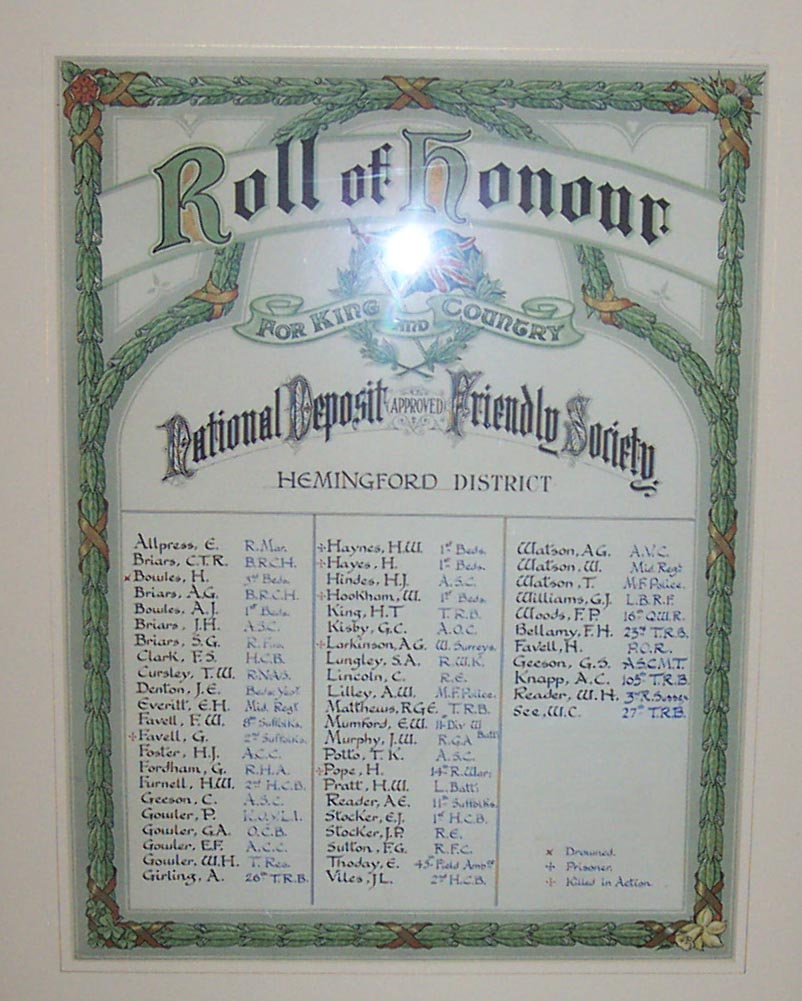 Roll of Honour
FOR KING AND COUNTRY
National Deposit APPROVED Friendly Society.
HEMINGFORD DISTRICT
Allpress, E. R. Mar.
Briars, C.T.R. B.R.C.H.
× Bowles, H. 3rd Beds.
Briars, A.G. B.R.C.H.
Bowles, A.J. 1st Beds.
Briars, J.H. A.S.C.
Briars, S.G. R. Fus.
Clark, F.S. H.C.B.
Cursley, T.W. R.N.A.S.
Denton, J.E. Beds. Yeo.
Everitt, E.H. Mid. Regt
Favell, F.W. 8th Suffolks.
+ Favell, G. 2nd Suffolks.
Foster, H.J. A.C.C.
Fordham, G. R.H.A.
Furnell, H.W. 2nd H.C.B.
Geeson, C. A.S.C.
Gowler, P. K.O.Y.L.I.
Gowler, G.A. O.C.B.
Gowler, E.F. A.C.C.
Gowler, W.H. T. Res.
Girling, A. 26th T.R.B.
+ Haynes, H.W. 1st Beds.
+ Hayes, H. 1st Beds.
Hindes, H.J. A.S.C.
+ Hookham, W. 1st Beds.
King, H.T T.R.B.
Kisby, G.C. A.O.C.
+ Larkinson, A.G. W. Surreys.
Lungley, S.A. R.W.K.
Lincoln, C. R.E.
Lilley, A.W. M.F. Police.
Matthews, R.G.E. T.R.B.
Mumford, E.W. 11 Div W Batt
Murphy, J.W. R.G.A
Potto, T.K. A.S.C.
+ Pope, H. 14th R. War:
Pratt, H.W. L. Batt.
Reader, A.E. 11th Suffolks.
Stocker, E.J. 1st H.C.B.
Stocker, J.P. R.E.
Sutton, F.G. R.F.C.
Thoday, E. 45th Field Ambce
Viles, J.L. 2nd H.C.B.
Watson, A.G. A.V.C.
Watson, W. Mid. Regt
Watson, T. M.F. Police.
Williams, G.J. L.B.R.F.
Woods, F.P. 16th Q.W.R.
Bellamy, F.H. 23rd T.R.B.
Favell, H. P.O.R.
Geeson, G.S. A.S.C.M.T.
Knapp, A.C. 105th T.R.B.
Reader, W.H. 3rd R. Sussex
See, W.C. 27th T.R.B.
× Drowned.
+ Prisoner.
+ Killed in Action.